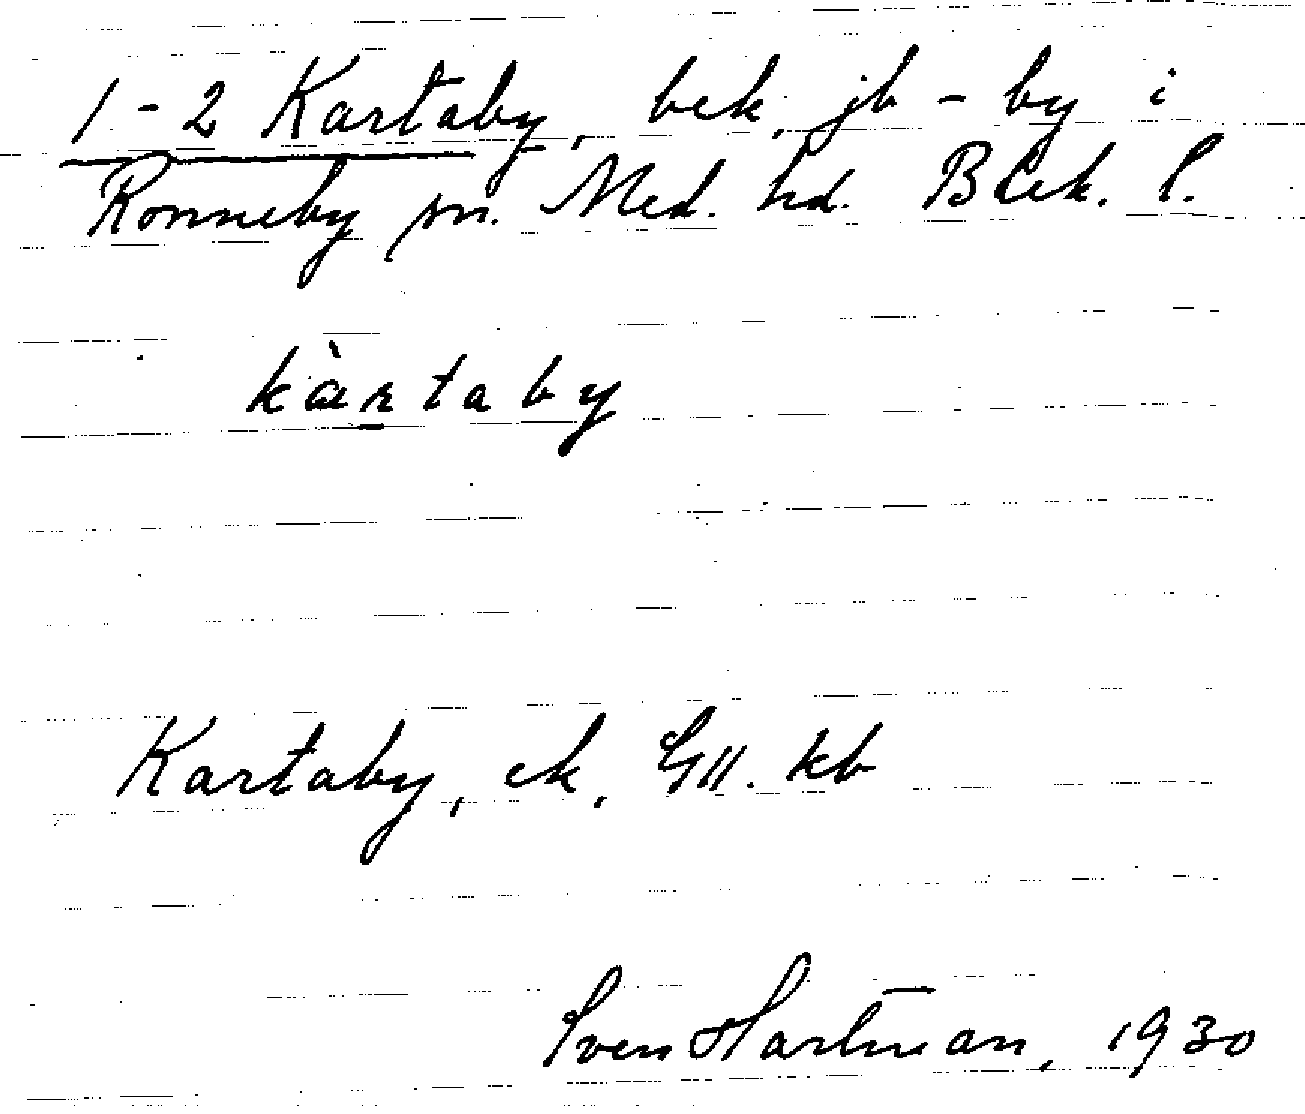 1-2 Kartaby, bek. jb-by i
Ronneby sn. Med. hd. Blek. l.
kàrtaby
Kartaby, ek, GII. kb
Sven Hartman, 1930